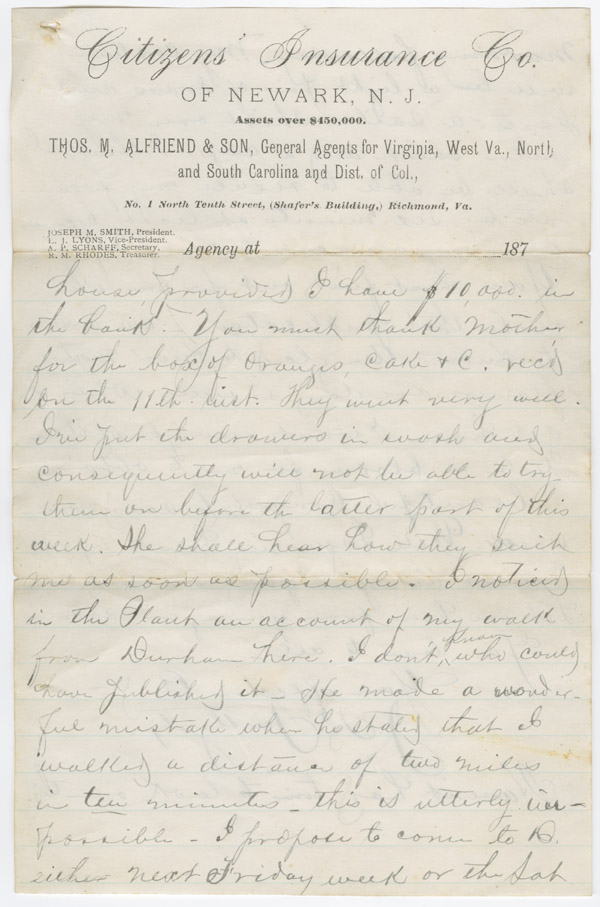 Citizens' Insurance Co.
OF NEWARK, N. J.
Assets over $450,000.
THOS. M. ALFRIEND & SON, General Agents for Virginia, West Va., North
and South Carolina and Dist. of Col.,
No. 1 North Tenth Street, (Shafer's Building,) Richmond, Va.
JOSEPH M. SMITH, President.
L. J. LYONS, Vice-President.
A. P. SCHARFF, Secretary.
R. M. RHODES, Treasurer.
Agency at 187
house, provided I have $10,000. in
the bank. You must thank Mother
for the box of Oranges, Cake & C. rec'd
on the 11th inst. They went very well.
I've put the drawers in wash and
consequently will not be able to try
them on before the latter part of this
week. She shall hear how they suit
me as soon as possible. I noticed
in the Plant an account of my walk
from Durham here. I don't know who could
have published it - He made a wonder-
ful mistake when he stated that I
walked a distance of two miles
in ten minutes - this is utterly im-
possible - I propose to come to D.
either next Friday week or the Sat